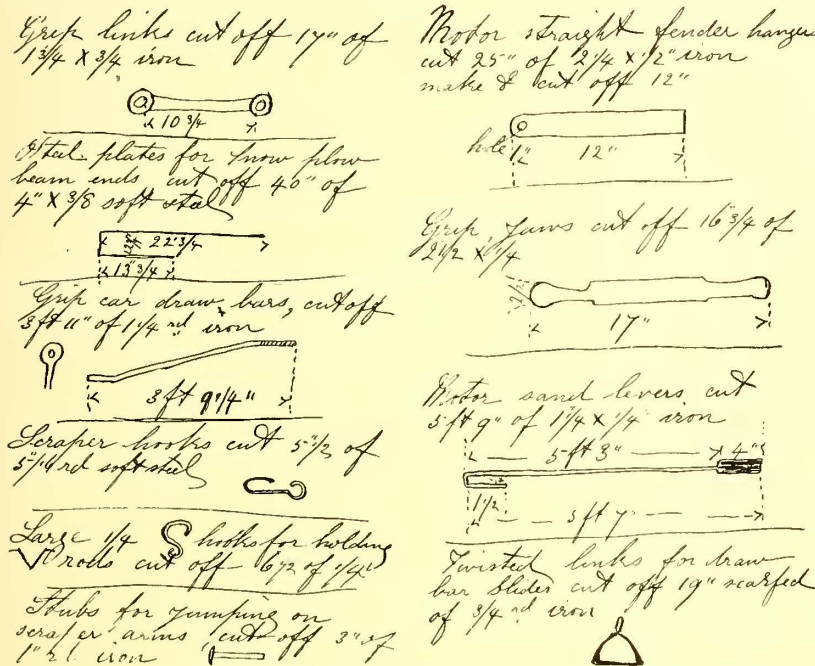 Grip links cut off 17" of
1 3/4 X 3/4 iron
10 3/4
Steel plates for snow plow
beam ends cut off 40" of
4" X 3/8 soft steel
22" 3/4
13" 3/4
Grip car draw bars, cut off
3 ft 11" of 1 1/4 rd iron
3 ft 9 1/4"
Scraper hooks cut 5" 1/2 of
5"/16 rd soft steel
Large 1/4 S hooks for holding
V rods cut off 6 1/2 of 1/4"
Stubs for jumping on
scraper arms cut off 3" of
1" rd. iron
Motor straight fender hanger
cut 25" of 2 1/4 X 1/2" iron
make 2 cut off 12"
hole 1" 12"
Grip Jaws cut off 16" 3/4 of
2 1/2 X 1/4
2 1/2
17"
Motor sand levers cut
5 ft 9" of 1 1/4 X 1/4 iron
5 ft 3" 4"
1 1/2
5 ft 7"
Twisted links for draw
bar Slides cut off 19" scarfed
of 3/4 rd iron